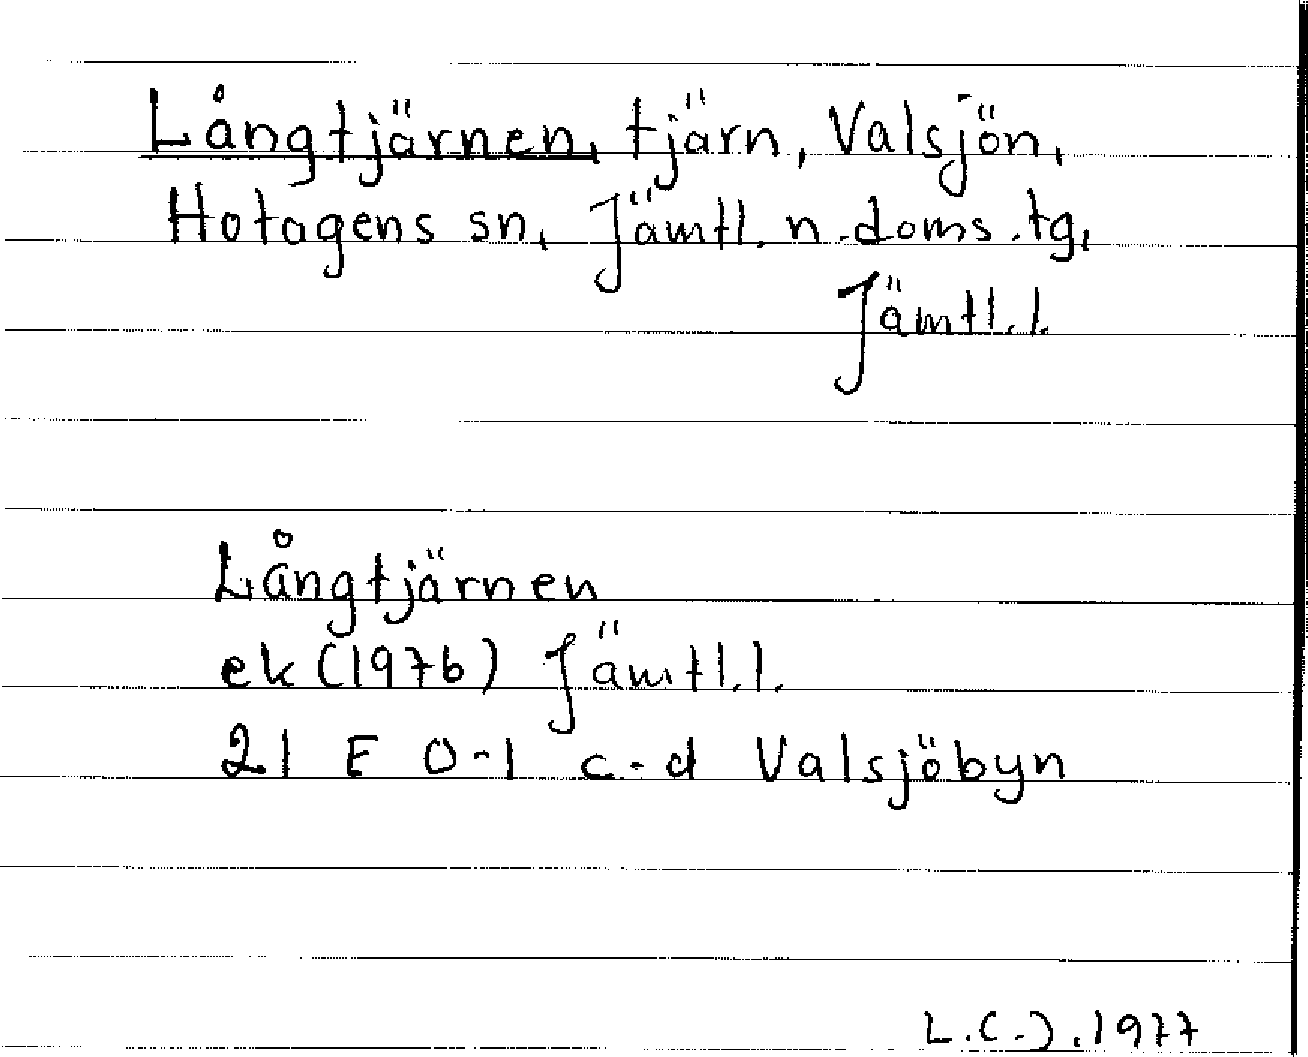 Långtjärnen, tjärn, Valsjön,
Hotagens sn, Jämtl. n. doms. tg,
Jämtl. l.
Långtjärnen
ek (1976) Jämtl. l.
21 E 0-1 c-d Valsjöbyn
1977